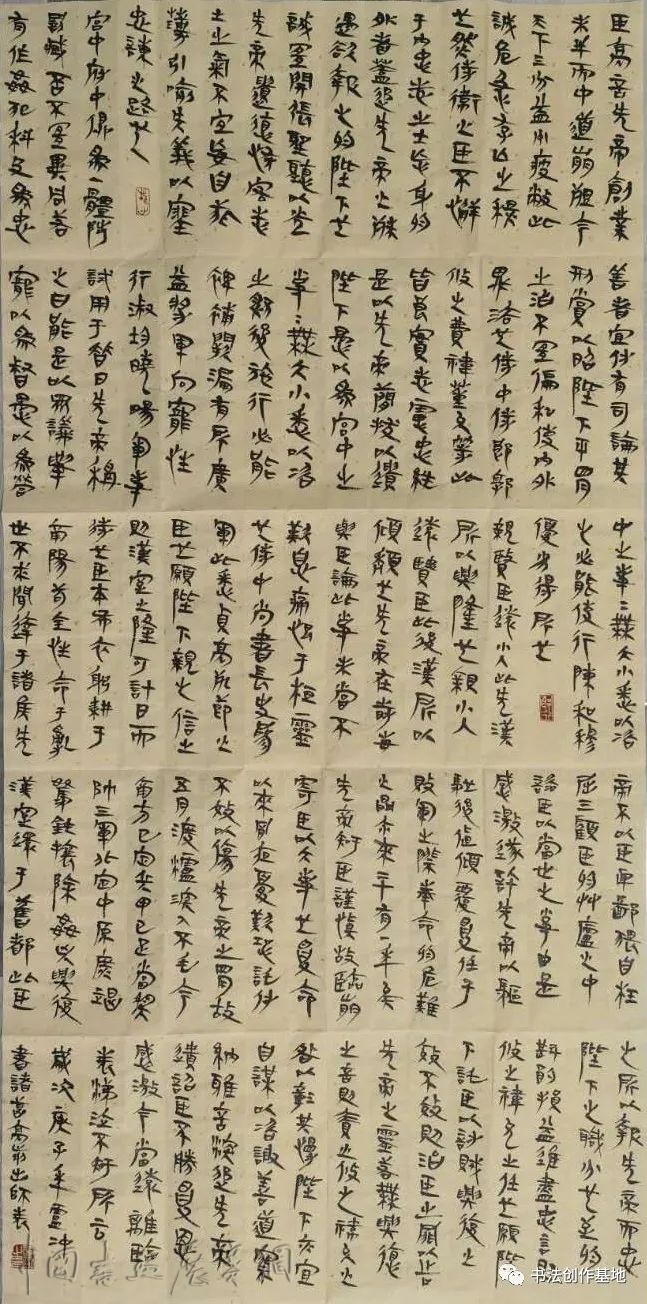 臣亮言先帝創業
未半而中道崩殂今
天下三分益州疲敝此
誠危急存亡之穐
也然侍衛之臣不懈
于內忠志之士忘身於
外者蓋追先帝之殊
遇欲報之於陛下也
誠宜開張聖聽以光
先帝遺德恢宏志
士之氣不宜妄自菲
薄引喻失義以塞
忠諫之路也
宮中府中俱為一體陟
罰臧否不宜異同若
有作姦犯科及為忠
善者宜付有司論其
刑賞以昭陛下平明
之治不宜偏私使內外
異法也侍中侍郎郭
攸之費禕董允等此
皆良實志慮忠純
是以先帝簡拔以遺
陛下愚以為宮中之
事〻無大小悉以咨
之然後施行必能
裨補闕漏有所廣
益將軍向寵性
行淑均曉暢軍事
試用于昔日先帝稱
之曰能是以眾議舉
寵以為督愚以為營
中之事〻無大小悉以咨
之必能使行陳和穆
優劣得所也
親賢臣遠小人此先漢
所以興隆也親小人
遠賢臣此後漢所以
傾頹也先帝在時每
與臣論此事未嘗不
歎息痛恨于桓靈
也侍中尚書長史參
軍此悉貞亮死節之
臣也願陛下親之信之
則漢室之隆可計日而
待也臣本布衣躬耕于
南陽苟全性命于亂
世不求聞達于諸侯先
帝不以臣卑鄙猥自枉
屈三顧臣於艸廬之中
諮臣以當世之事由是
感激遂許先帝以驅
馳後值傾覆受任于
敗軍之際奉命於危難
之間爾來二十有一年矣
先帝知臣謹慎故臨崩
寄臣以大事也受命
以來夙夜憂歎恐託付
不效以傷先帝之明故
五月渡瀘深入不毛今
南方已定兵甲已足當獎
帥三軍北定中原庶竭
駑鈍攘除姦凶興復
漢室還于舊都此臣
之所以報先帝而忠
陛下之職分也至於
斟酌損益進盡忠言則
攸之禕允之任也願陛
下託臣以討賊興復之
效不效則治臣之罪以告
先帝之靈若無興德
之言則責攸之禕允之
咎以彰其慢陛下亦宜
自謀以咨諏善道察
納雅言深追先帝
遺詔臣不勝受恩
感激今當遠離臨
表涕泣不知所云
歲次庚子年靈冲
書諸葛亮前出師表
书法创作基地